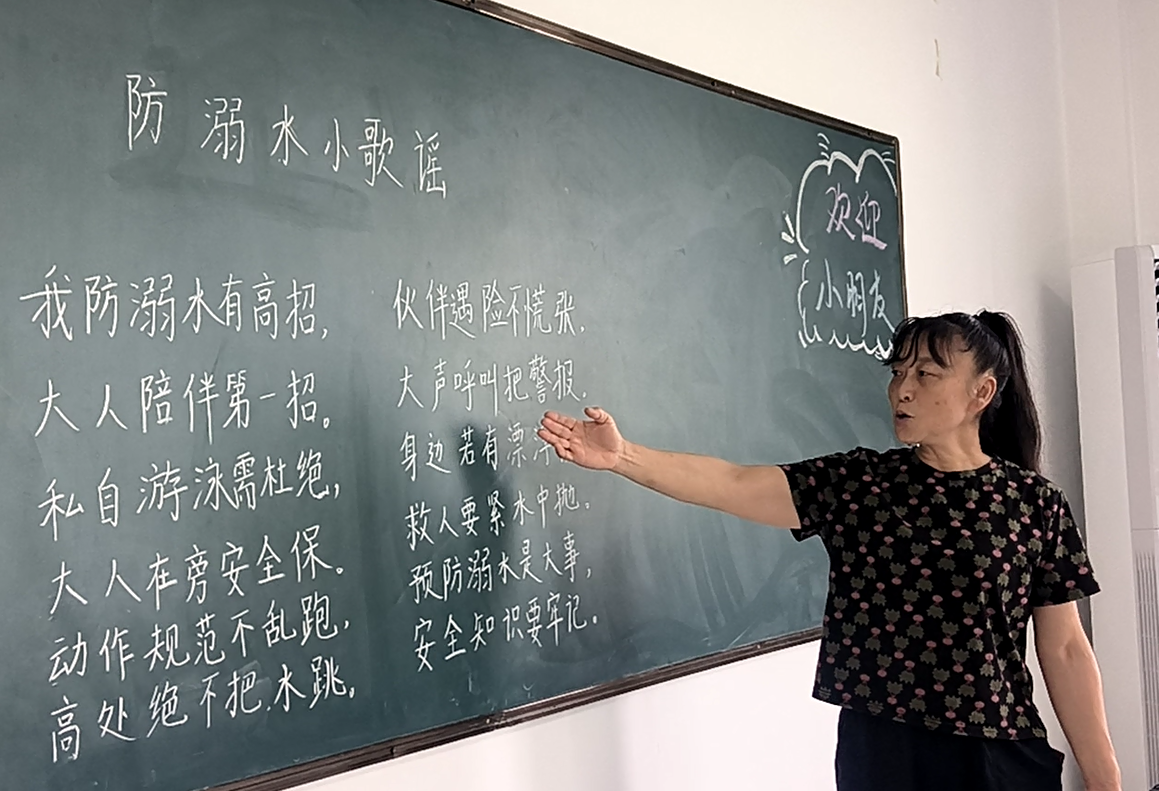 防溺水小歌谣
我防溺水有高招，
大人陪伴第一招。
私自游泳需杜绝，
大人在旁安全保。
动作规范不乱跑，
高处绝不把水跳。
伙伴遇险不慌张，
大声呼叫把警报。
身边若有漂浮
救人要紧水中抛。
预防溺水是大事，
安全知识要牢记。
欢迎
小朋友